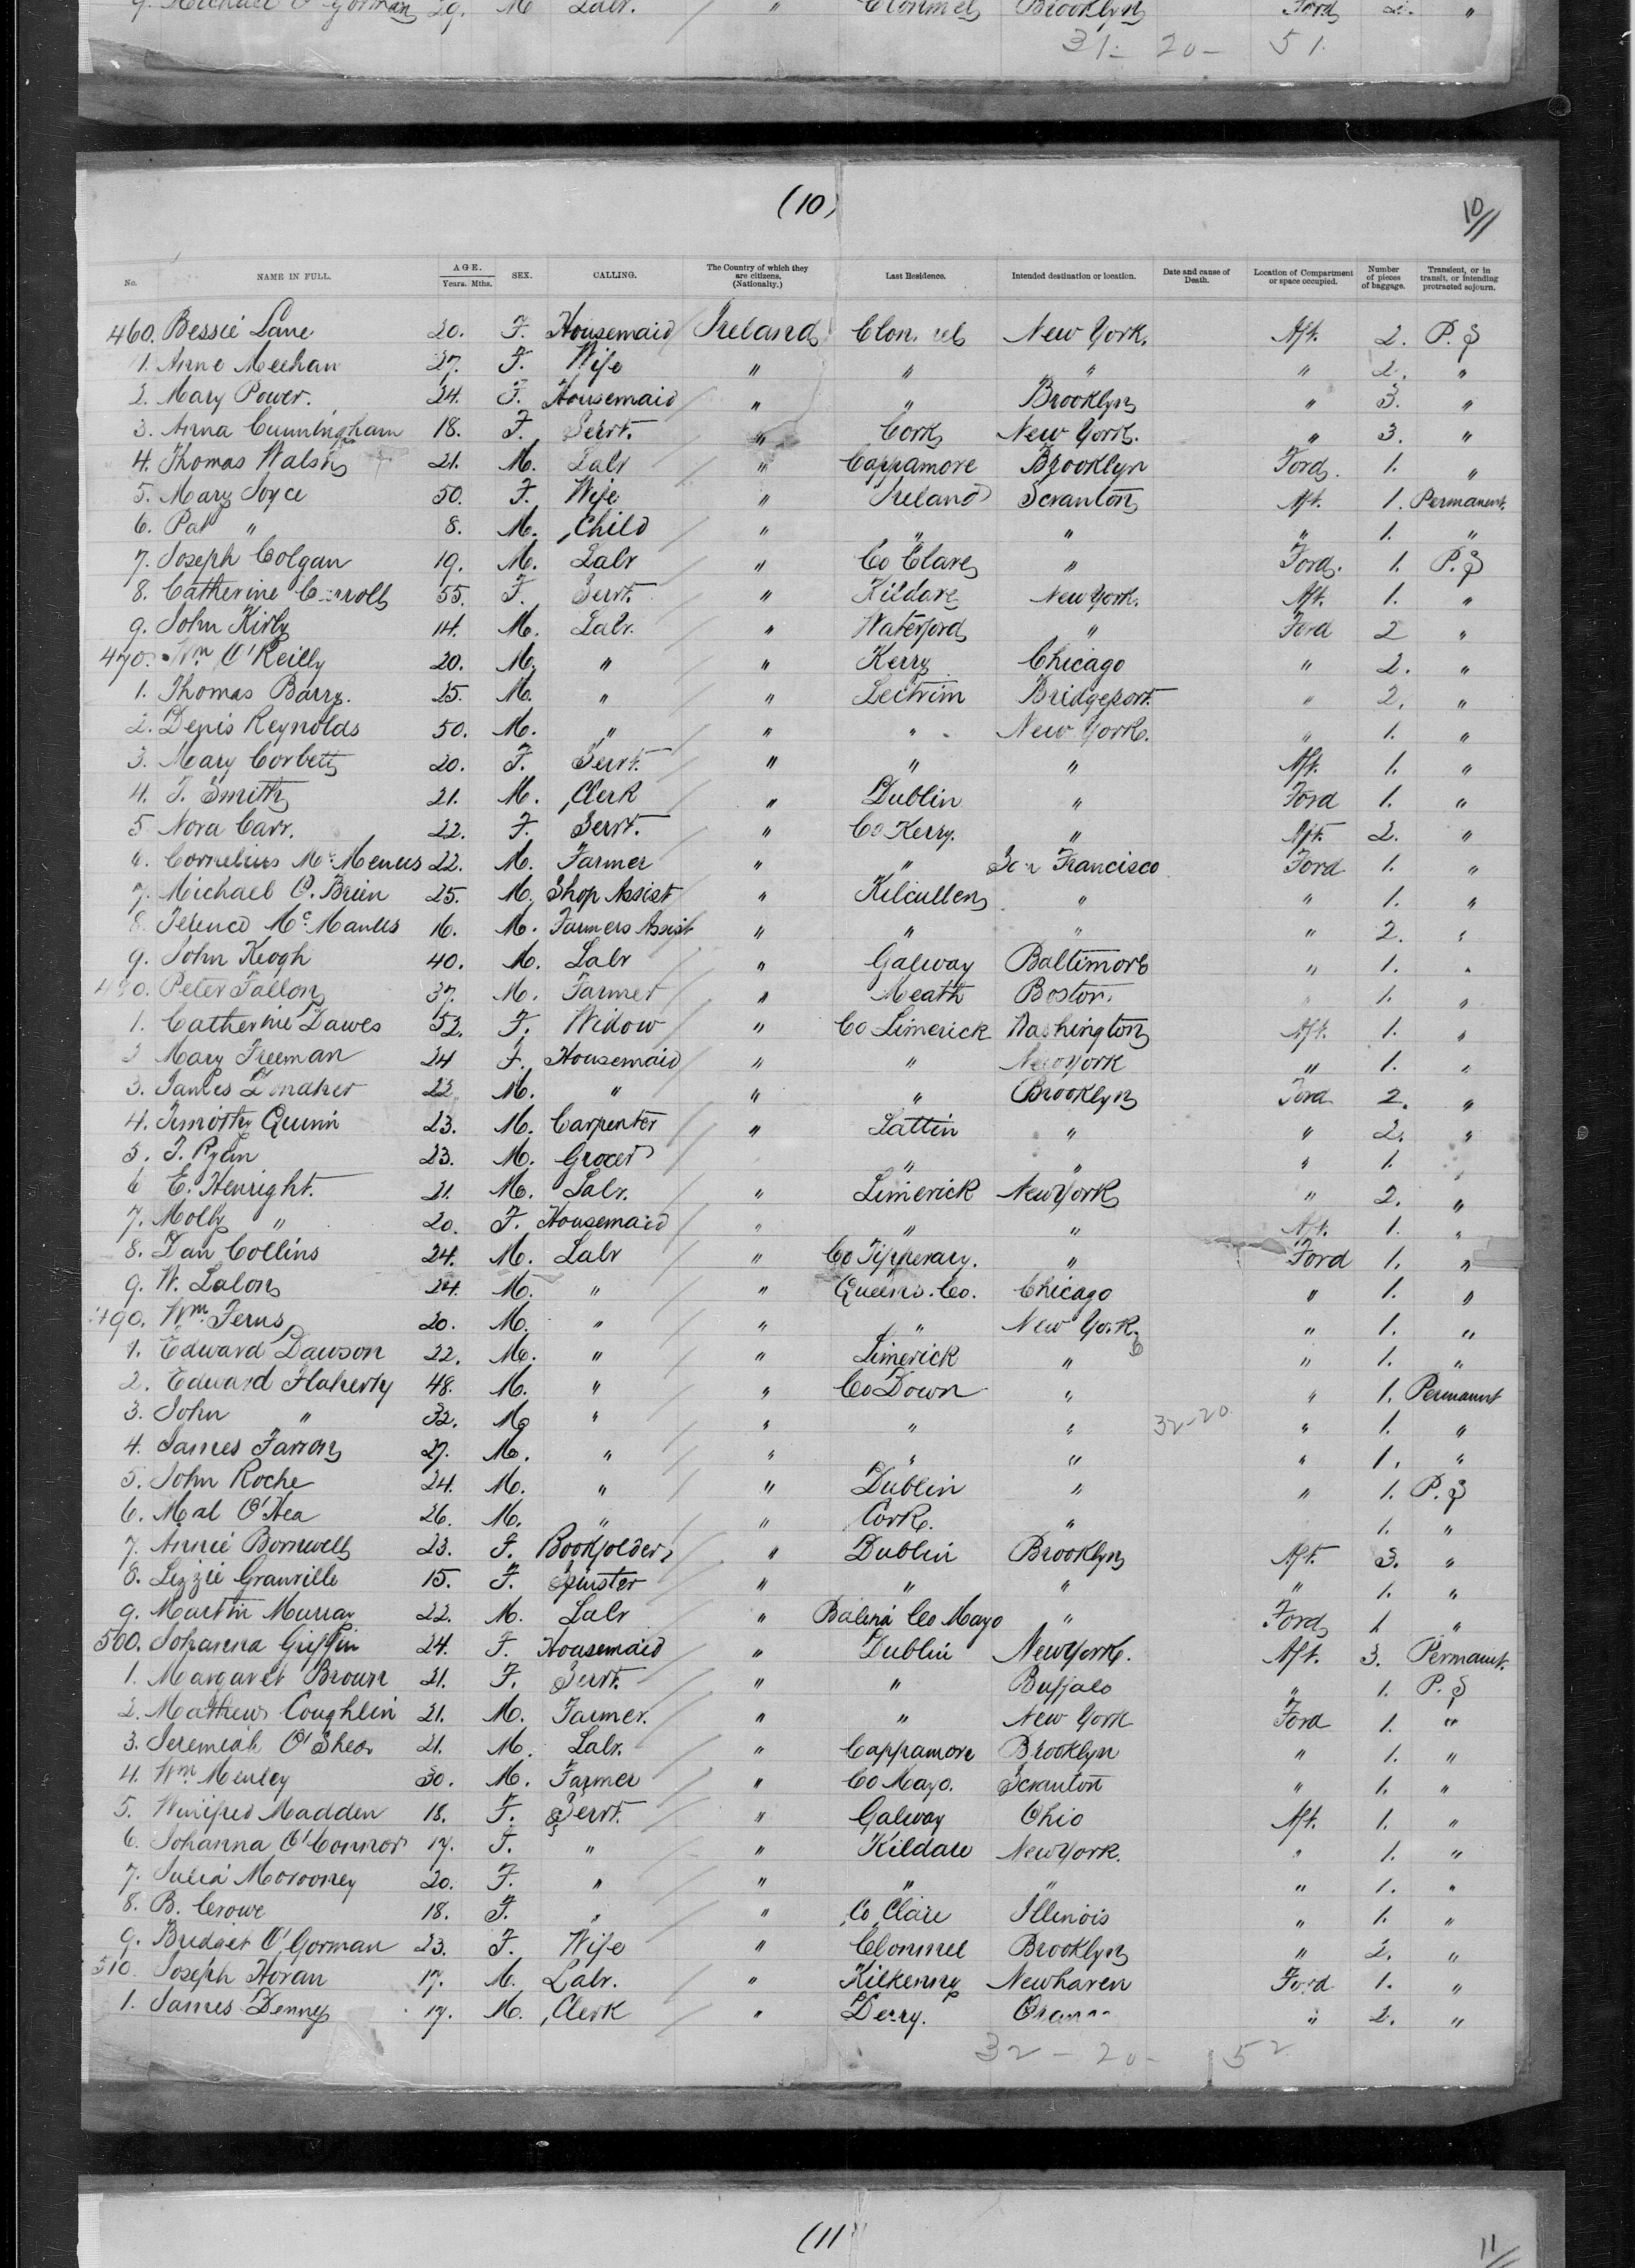 9. Michael O'Gorman 29. M Labr. " Clonmel Brooklyn Ford 2. "
31 - 20 - 51.
(10)
10/11
No. NAME IN FULL. AGE. Years. Mths. SEX. CALLING. The Country of which they are citizens. (Nationalty.) Last Residence. Intended destination or location. Date and cause of Death. Location of Compartment or space occupied. Number of pieces of baggage. Transient, or in transit, or intending protracted sojourn.
460. Bessie Lane 20. F. Housemaid Ireland Clonmel New York. Aft. 2. P.S
1. Anne Meehan 27. F. Wife " " " " 2. "
2. Mary Power. 24. F. Housemaid " " Brooklyn " 3. "
3. Anna Cunningham 18. F. Servt. " Cork New York. " 3. "
4. Thomas Walsh 21. M. Labr " Cappamore Brooklyn Ford. 1. "
5. Mary Joyce 50. F. Wife " Ireland Scranton Aft. 1. Permanent.
6. Pat " 8. M. Child " " " " 1. "
7. Joseph Colgan 19. M. Labr " Co Clare " Ford. 1. P.S
8. Catherine Carroll 55. F. Servt. " Kildare New York. Aft. 1. "
9. John Kirby 14. M. Labr. " Waterford " Ford 2 "
470. Wm O'Reilly 20. M. " " Kerry Chicago " 2. "
1. Thomas Barry. 25. M. " " Leitrim Bridgeport. " 2. "
2. Denis Reynolds 50. M. " " " New York. " 1. "
3. Mary Corbett 20. F. Servt. " " " Aft. 1. "
4. J. Smith 21. M. Clerk " Dublin " Ford 1. "
5 Nora Carr. 22. F. Servt. " Co Kerry. " Aft. 2. "
6. Cornelius McMenus 22. M. Farmer " " San Francisco Ford 1. "
7. Michael O'Brien 25. M. Shop Assist " Kilcullen " " 1. "
8. Terence McManus 16. M. Farmers Assist " " " " 2. "
9. John Keogh 40. M. Labr " Galway Baltimore " 1. "
480. Peter Fallon 37. M. Farmer " Meath Boston. " 1. "
1. Catherine Dawes 52. F. Widow " Co Limerick Washington Aft. 1. "
2 Mary Freeman 24 F. Housemaid " " New York " 1. "
3. James 23 M. " " " Brooklyn Ford 2. "
4. Timothy Quinn 23. M. Carpenter " Lattin " " 2. "
5. J. Ryan 23. M. Grocer " " " 1. "
6 E. Henright. 21. M. Labr. " Limerick New York " 2. "
7. Molly " 20. F. Housemaid " " " Aft. 1. "
8. Dan Collins 24. M. Labr " Co Tipperary. " Ford 1. "
9. W. Lalon 24. M. " " Queens. Co. Chicago " 1. "
490. Wm. Ferns 20. M. " " " New York. " 1. "
1. Edward Dawson 22. M. " " Limerick " " 1. "
2. Edward Flaherty 48. M. " " Co Down " " 1. Permanent
3. John " 32. M. " " " " 32-20 " 1. "
4. James Farron 27. M. " " " " " 1. "
5. John Roche 24. M. " " Dublin " " 1. P.S
6. Mal O'Hea 26. M. " " Cork. " 1. "
7. Annie Bornwell 23. F. Bookfolder " Dublin Brooklyn Aft. 3. "
8. Lizzie Granville 15. F. Spinster " " " " 1. "
9. Martin Murray 22. M. Labr " Balina Co Mayo " Ford 1 "
500. Johanna Griffin 24. F. Housemaid " Dublin New York. Aft. 3. Permanent.
1. Margaret Brown 21. F. Servt. " " Buffalo " 1. P.S
2. Mathew Coughlin 21. M. Farmer. " " New York Ford 1. "
3. Jeremiah O'Shea 21. M. Labr. " Cappamore Brooklyn " 1. "
4. Wm Menley 30. M. Farmer " Co Mayo. Scranton " 1. "
5. Winifred Madden 18. F. Servt. " Galway Ohio Aft. 1. "
6. Johanna O'Connor 17. F. " " Kildare New York. " 1. "
7. Julia Morooney 20. F. " " " " " 1. "
8. B. Crowe 18. F. " " Co Clare Illinois " 1. "
9. Bridget O'Gorman 23. F. Wife " Clonmel Brooklyn " 2. "
510. Joseph Horan 17. M. Labr. " Kilkenny Newhaven Ford 1. "
1. James Denney 17. M. Clerk " Derry. " 2. "
32 - 20 - 52
(11
11